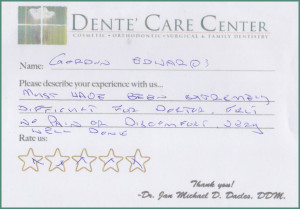 DENTE' CARE CENTER
COSMETIC • ORTHODONTIC • SURGICAL & FAMILY DENTISTRY
Name: GORDON EDWARDS
Please describe your experience with us...
MUST HAVE BEEN EXTREMELY
DIFFICULT FOR DOCTOR. FELT
NO PAIN OR DISCOMFORT. VERY
WELL DONE
Rate us:
Thank you!
-Dr. Jan Michael D. Dacles, DDM.